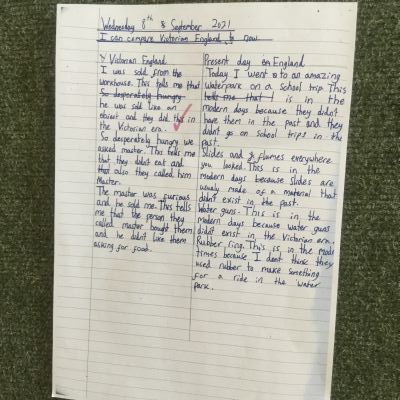 Wednesday 8th September 2021
I can compare Victorian England to now.
Victorian England
I was sold from the
workhouse. This tells me that
So desperately hungry
he was sold like an
object and they did this in
the Victorian era.
So desperately hungry we
asked master. This tells me
that they didnt eat and
that also they called him
Master.
The master was furious
and he sold me. This tells
me that the person they
called master bought them
and he didn't like them
asking for food.
Present day England
Today I went to an amazing
waterpark on a school trip This
tells me that I is in the
modern days because they didn't
have them in the past and they
didnt go on school trips in the
past.
Slides and flumes everywhere
you looked. This is in the
modern days because slides are
usualy made of a material that
didn't exist in the past.
Water guns. This is in the
modern days because water guns
didn't exist in the Victorian era.
Rubber ring. This is in the
times because I dont think they
used rubber to make something
for a ride in the water
park.